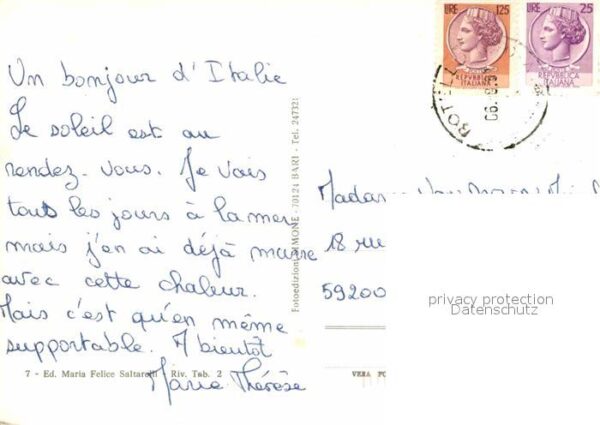 Un bonjour d'Italie
Le soleil est au
rendez-vous. Je vais
tous les jours à la mer
mais j'en ai déjà marre
avec cette chaleur.
Mais c'est qu'en même
supportable. A bientôt
Marie Thérèse
7 - Ed. Maria Felice Saltarelli - Riv. Tab. 2
- 70124 BARI - Tel. 247321
LIRE 125
REPUBBLICA
ITALIANA
LIRE 25
REPUBBLICA
ITALIANA
Madame
18 rue
59200
privacy protection
Datenschutz
VERA